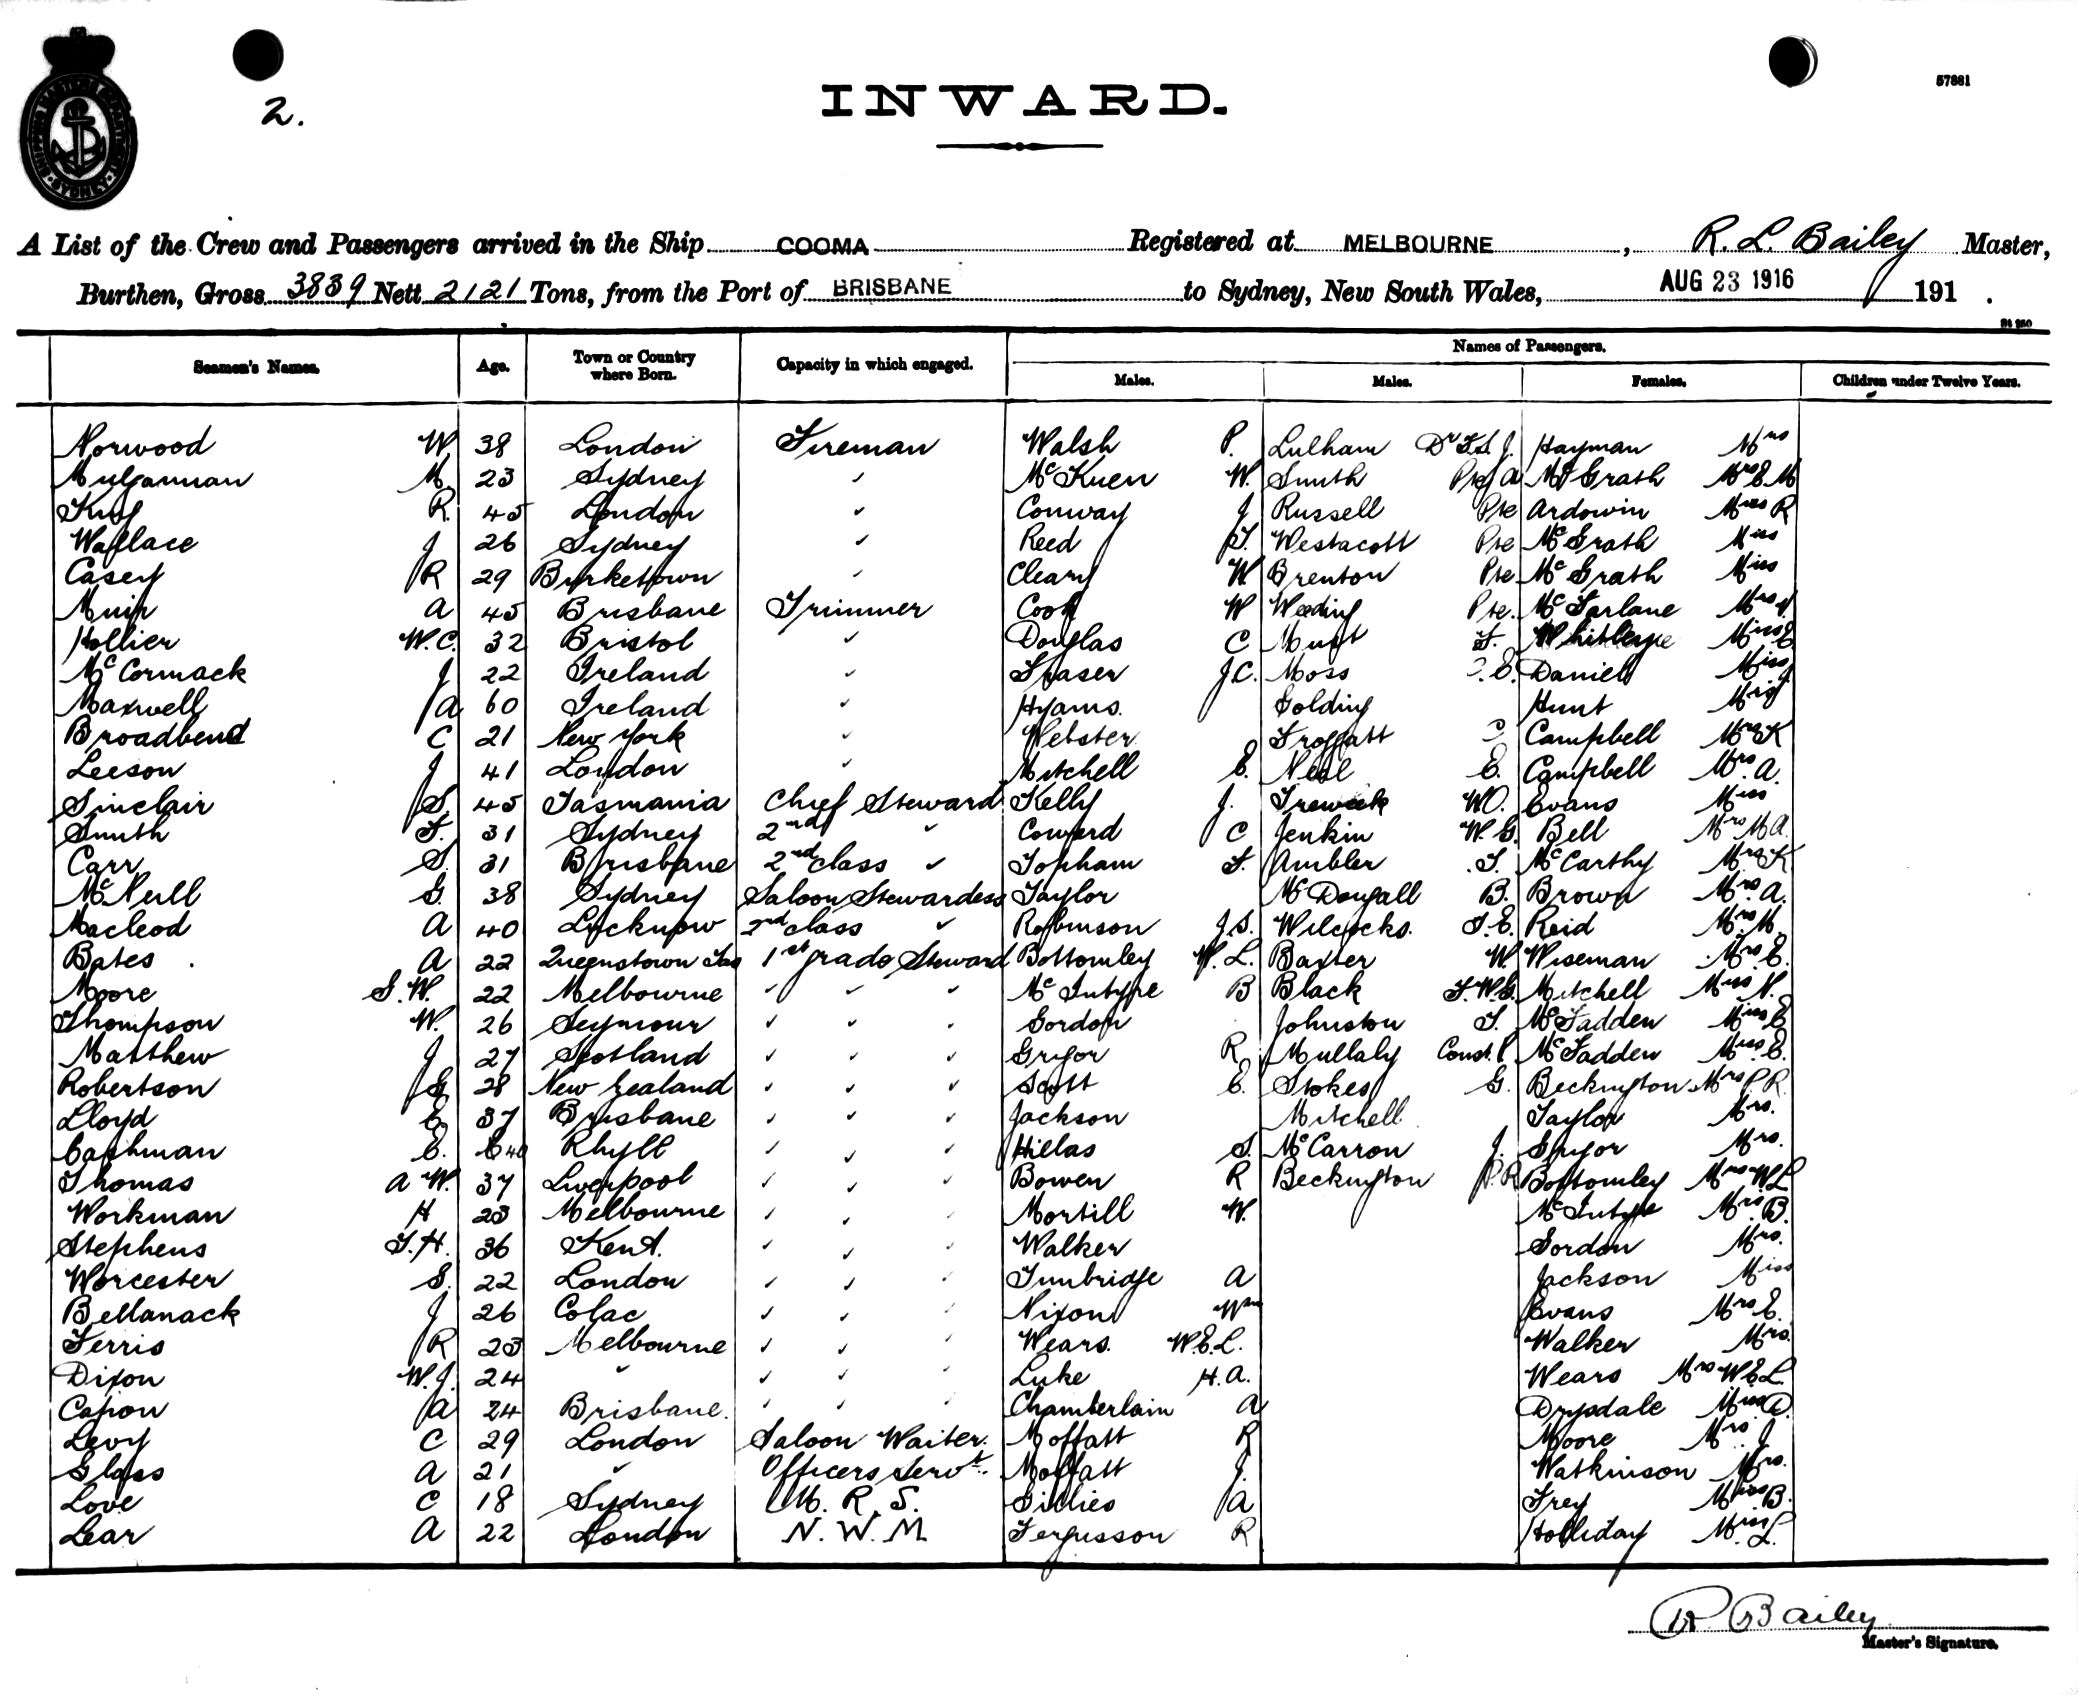 2.
INWARD.
57881
SHIPPING MASTER'S DEPARTMENT SYDNEY
A List of the Crew and Passengers arrived in the Ship COOMA Registered at MELBOURNE, R. L. Bailey Master,
Burthen, Gross 3839 Nett 2121 Tons, from the Port of BRISBANE to Sydney, New South Wales, AUG 23 1916 191 .
Names of Passengers.
Seamen's Names. Age. Town or Country where Born. Capacity in which engaged. Males. Males. Females. Children under Twelve Years.
Norwood W. 38 London Fireman Walsh P. Lulham Dr Hayman Mrs
M. 23 Sydney ✓ McKuen W. Smith Pte A McGrath Mrs E M
King R. 45 London ✓ Conway J Russell Pte Ardowin Miss R
Wallace J 26 Sydney ✓ Reed Westacott Pte McGrath Miss
Casey R 29 Burketown ✓ Cleary W Brenton Pte McGrath Miss
Muir A 45 Brisbane Trimmer Cook W Weeding Pte. McFarlane Mrs
Hollier W.C. 32 Bristol ✓ Douglas C F. Miss E
McCormack J 22 Ireland ✓ Fraser J.C. Moss E. Daniell Miss
Maxwell A 60 Ireland ✓ Hyams. Golding Hunt Miss
Broadbend C 21 New York ✓ Webster Froggatt Campbell Mrs K
Leeson J 41 London ✓ Mitchell E. Neil E. Campbell Mrs. A.
Sinclair S. 45 Tasmania Chief Steward Kelly J. Treweek W.O. Evans Miss
Smith F. 31 Sydney 2nd ✓ Coward C Jenkin W.G. Bell Mrs M A.
Carr S. 31 Brisbane 2nd class ✓ Topham F. Ambler J. McCarthy Mrs K
McNeill G. 38 Sydney Saloon Stewardess Taylor McDougall B. Brown Mrs. A.
Macleod A 40 Lucknow 2nd class ✓ Robinson J.S. Wilcocks. T.E. Reid Mrs M.
Bates A 22 Queenstown Tas 1st grade Steward Bottomley W.L. Baxter W. Wiseman Mrs. E.
Moore S.W. 22 Melbourne ✓ ✓ ✓ McIntype B Black F.W.G. Mitchell Miss N.
Thompson W. 26 Seymour ✓ ✓ ✓ Gordon Johnston T. McFadden Miss E
Matthew J 27 Scotland ✓ ✓ ✓ Grigor R Mullaly Const. P. McFadden Miss E.
Robertson G 28 New Zealand ✓ ✓ ✓ Scott E. Stokes G. Beckington Mrs P R
Lloyd E 37 Brisbane ✓ ✓ ✓ Jackson Mitchell Taylor Mrs.
Cashman E. 40 Rhyll ✓ ✓ ✓ Hillas S. McCarron J. Mrs.
Thomas A W. 37 Liverpool ✓ ✓ ✓ Bowen R Beckington P.R Bottomley Mrs W L
Workman H 23 Melbourne ✓ ✓ ✓ Mortill W. McIntype Mrs B.
Stephens T.H. 36 Kent. ✓ ✓ ✓ Walker Gordon Mrs.
Worcester S. 22 London ✓ ✓ ✓ Tunbridge A Jackson Miss
Bellanack J 26 Colac ✓ ✓ ✓ Nixon Wm Evans Mrs E.
Ferris R 23 Melbourne ✓ ✓ ✓ Wears. W.E.L. Walker Mrs.
Dixon W.J. 24 ✓ ✓ ✓ ✓ Luke H.A. Wears Mrs W E L.
Capon A 24 Brisbane. ✓ ✓ ✓ Chamberlain A Drysdale Miss D.
Levy C 29 London Saloon Waiter. Moffatt R Moore Mrs. J
Glass A 21 ✓ Officers Servt. Moffatt J. Watkinson Mrs.
Love C 18 Sydney M. R. S. Gillies A Frey Miss B.
Lear A 22 London N. W. M Fergusson R Holliday Miss L.
R Bailey
Master's Signature.